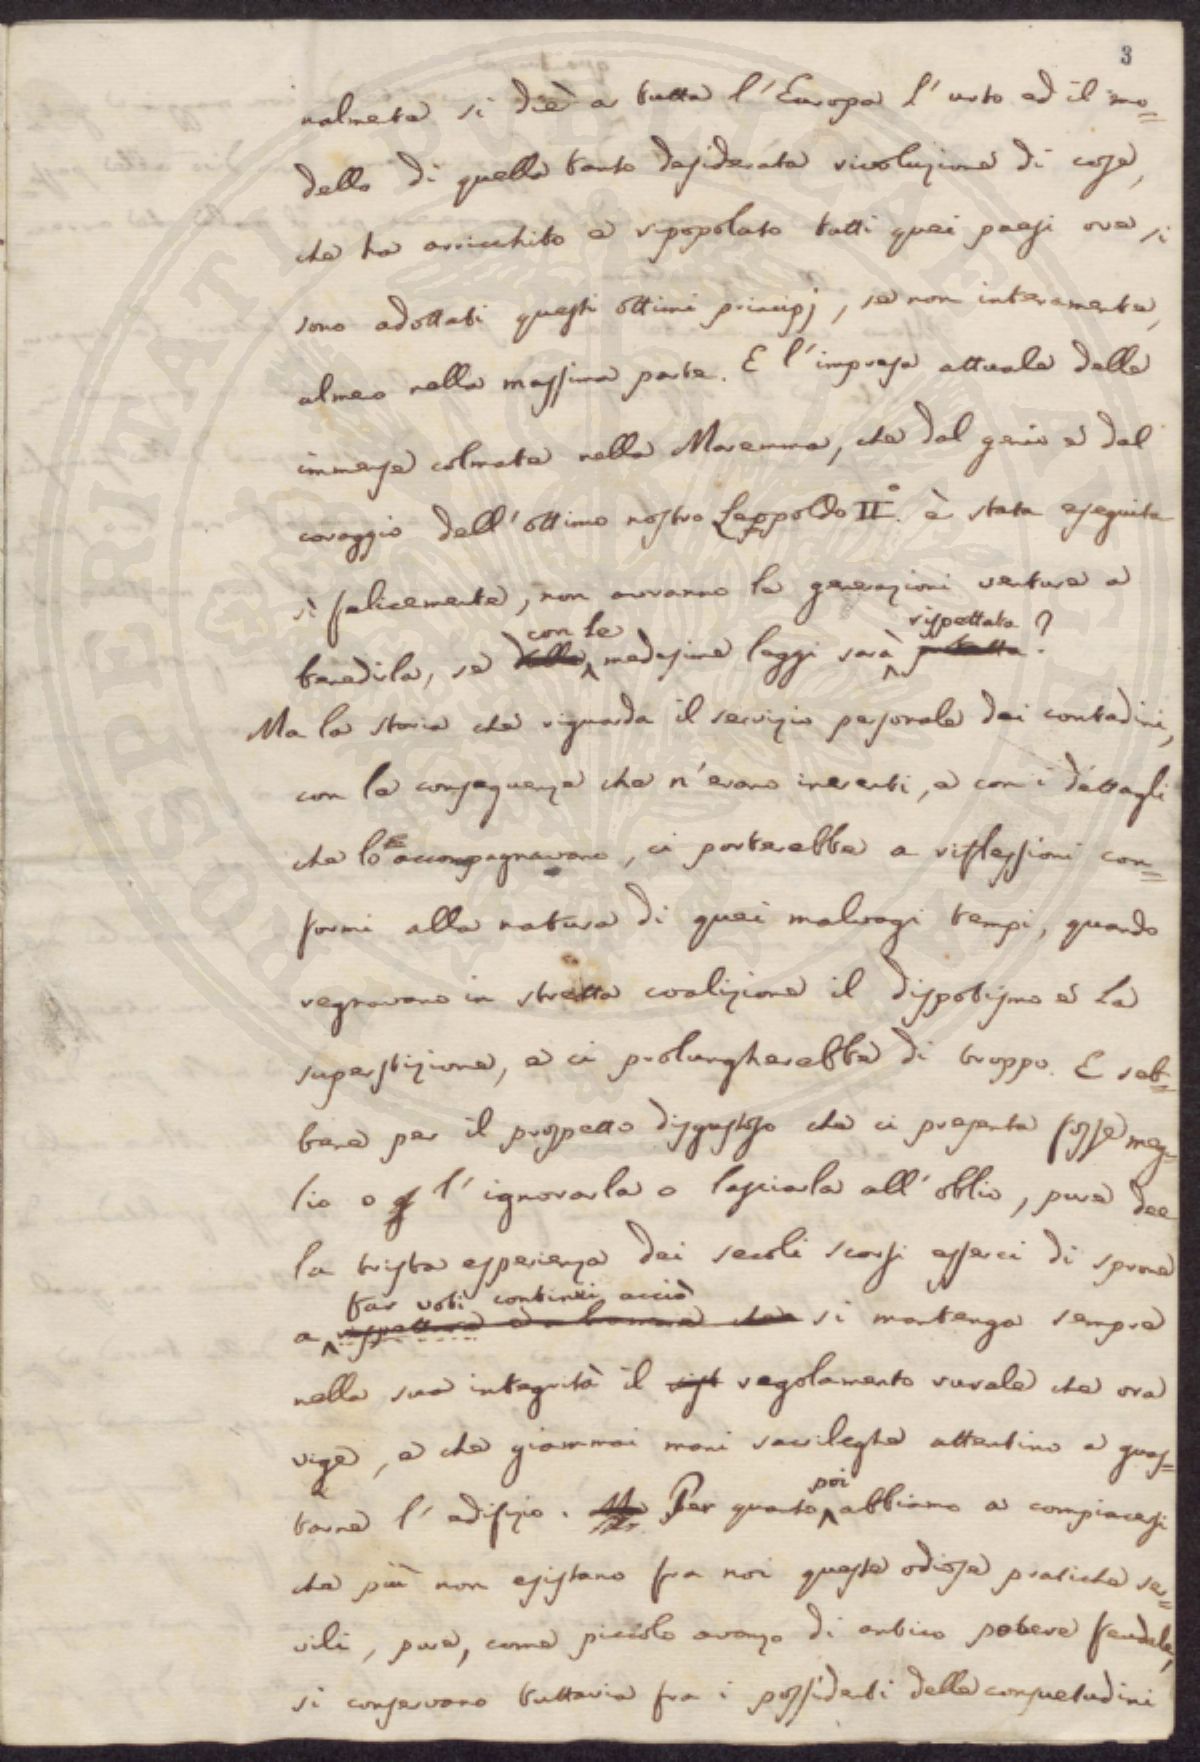 3
nalmente si diè a tutta l'Europa l'urto ed il mo=
dello di quella tanto desiderata rivoluzione di cose,
che ha arricchito e ripopolato tutti quei paesi ove si
sono adottati questi ottimi principj, se non interamente,
almeno nella massima parte. E l'impresa attuale delle
immense colmate nella Maremma, che dal genio e dal
coraggio dell'ottimo nostro Leopoldo II.° è stata eseguita
sì felicemente, non avranno le generazioni venture a
con le rispettata ?
benedirla, se dalle medesime leggi sarà protetta.
Ma la storia che riguarda il servizio personale dei contadini,
con le conseguenze che n'erano inerenti, e con i dettagli
che lo accompagnavano, ci porterebbe a riflessioni con=
formi alla natura di quei malvagi tempi, quando
regnavano in stretta coalizione il dispotismo e la
superstizione, e ci prolungherebbe di troppo. E seb=
bene per il prospetto disgustoso che ci presenta fosse meg=
lio o l'ignorarla o lasciarla all'oblio, pure dee
la trista esperienza dei secoli scorsi esserci di sprone
far voti continui acciò
a rispettare e a bramare che si mantenga sempre
nella sua integrità il sist regolamento rurale che ora
vige, e che giammai mani sacrileghe attentino a guas=
poi
tarne l'edifizio. Ma Per quanto abbiamo a compiacerci
che più non esistano fra noi queste odiose pratiche ser=
vili, pure, come piccolo avanzo di antico potere feudale,
si conservano tuttavia fra i possidenti delle consuetudini
PROSPERITATI PUBLICAE AUGENDAE